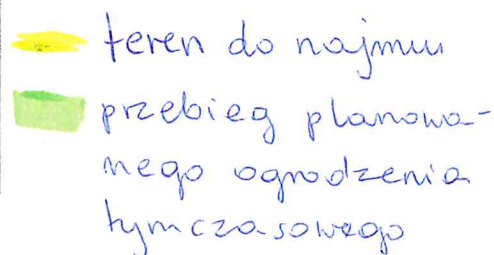 teren do najmu
przebieg planowa-
nego ogrodzenia
tymczasowego